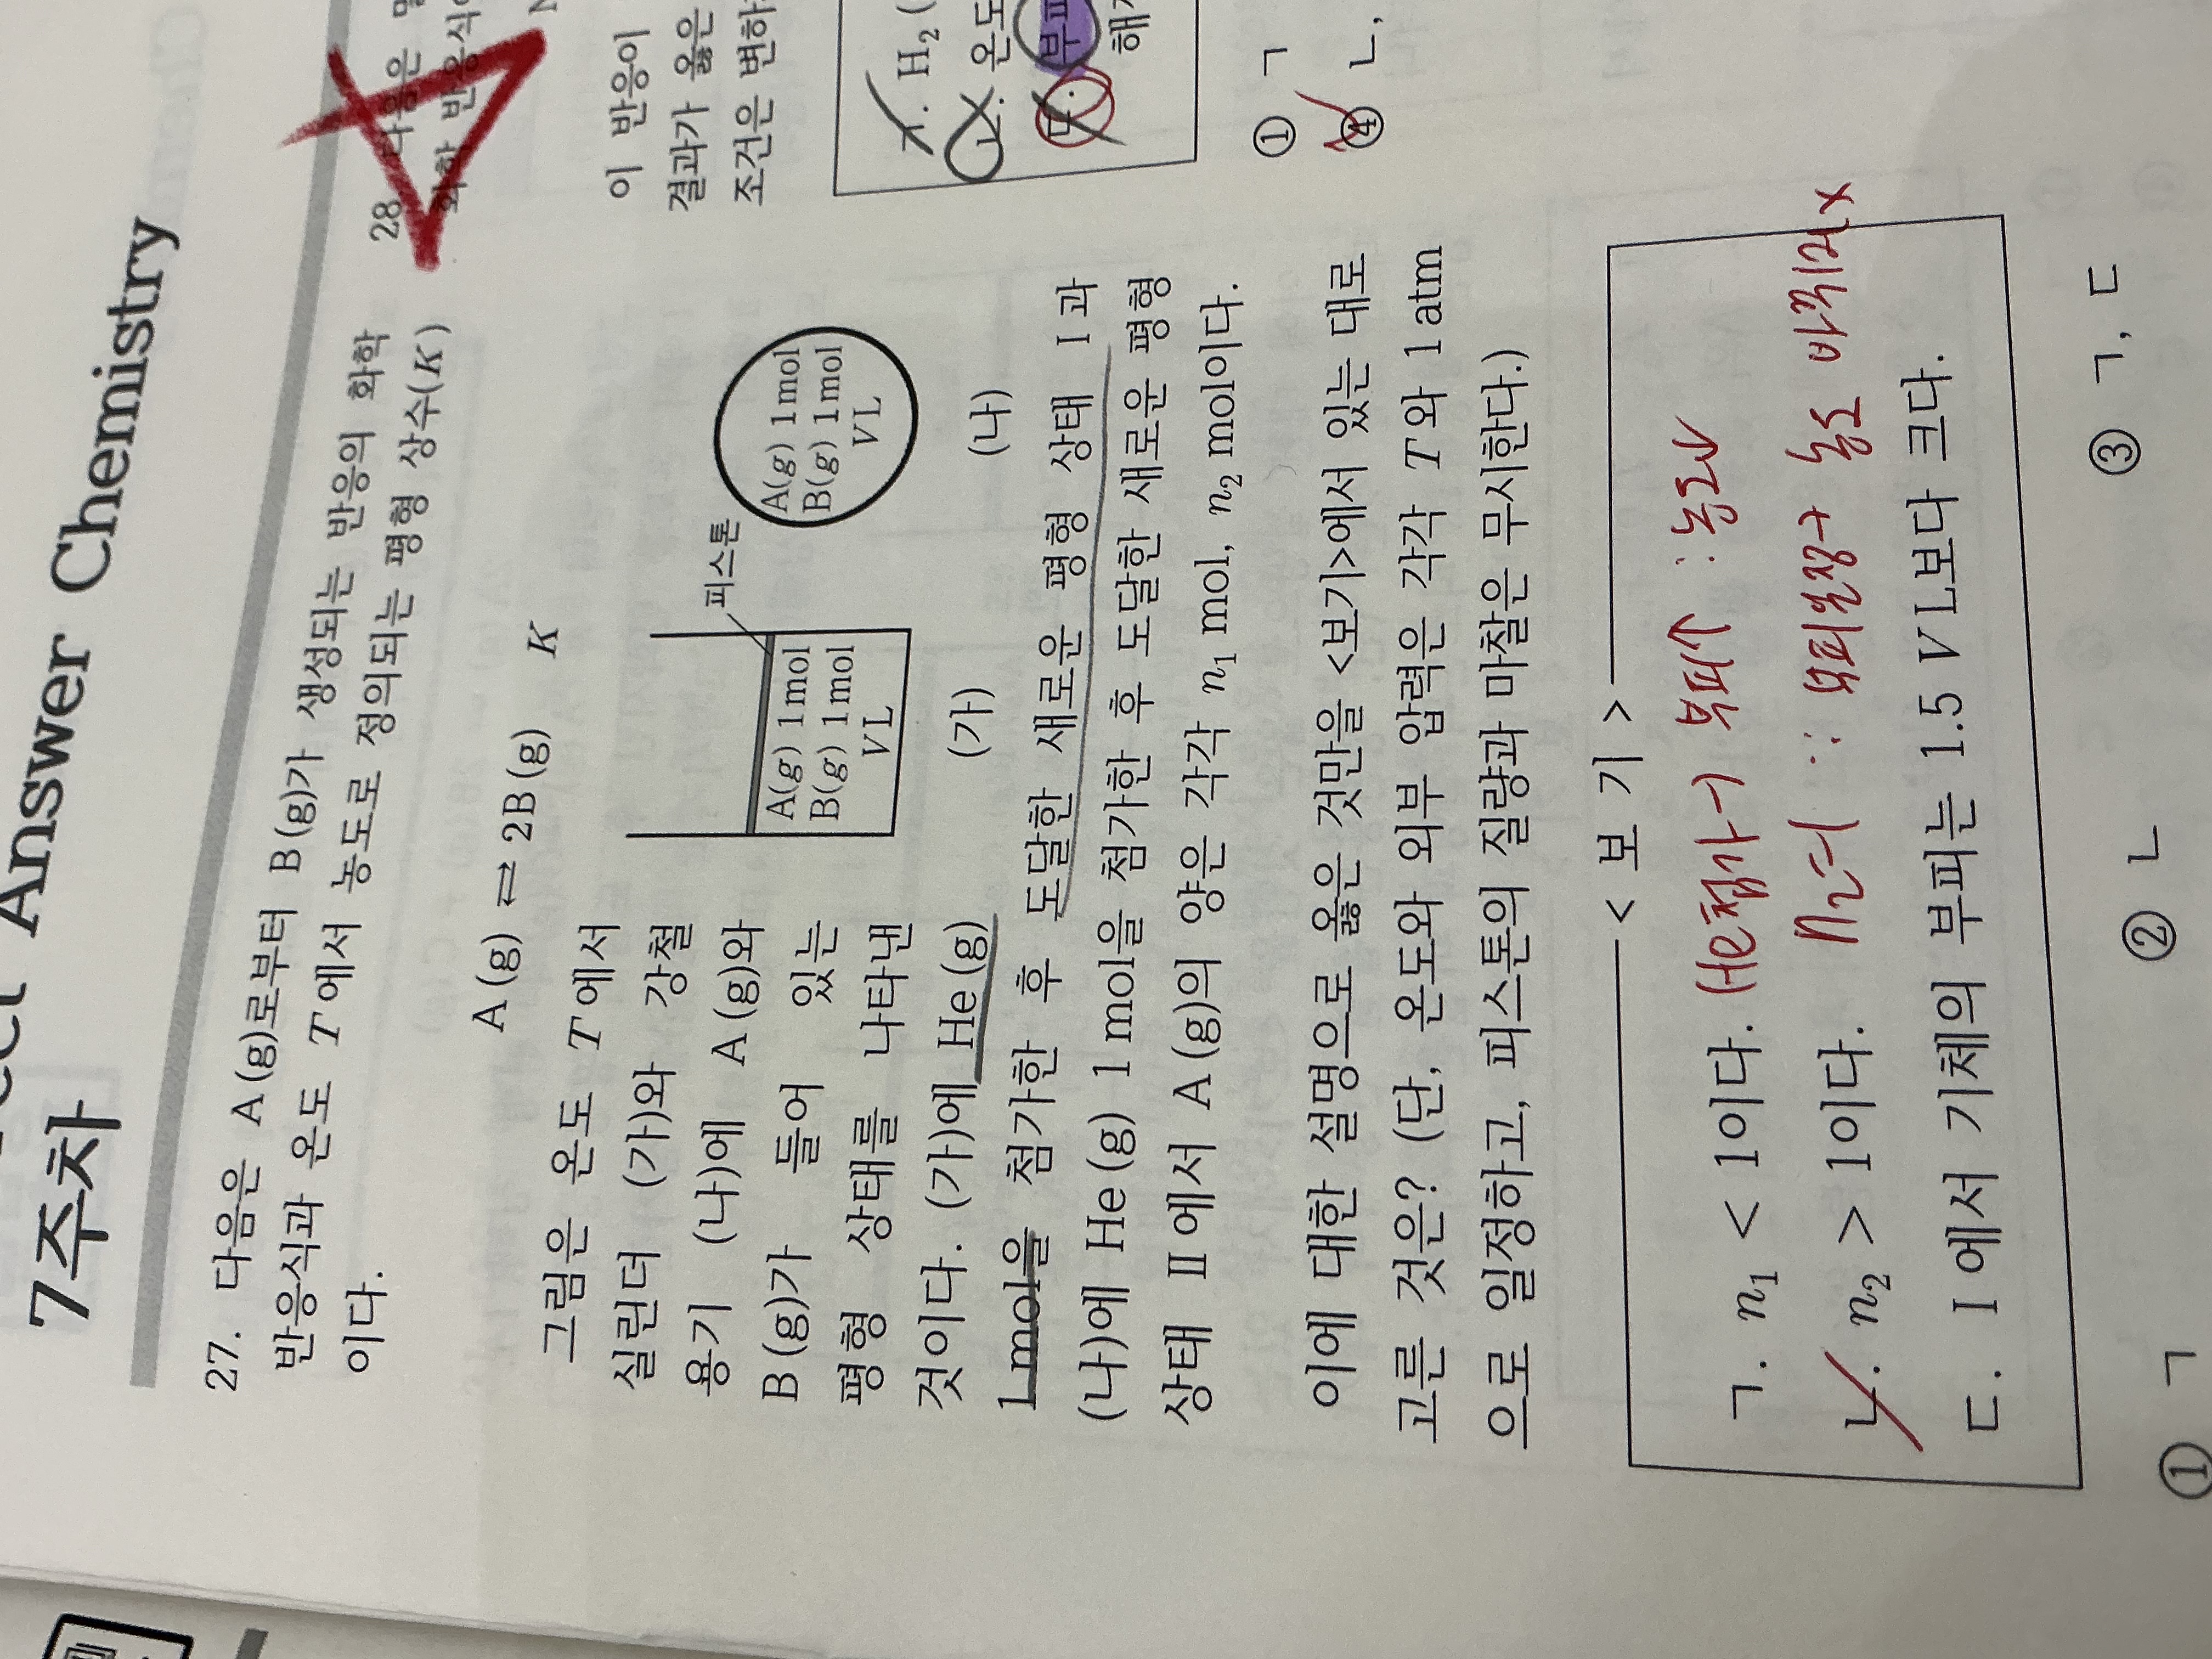 Answer Chemistry
7주차
27. 다음은 A(g)로부터 B(g)가 생성되는 반응의 화학
반응식과 온도 T에서 농도로 정의되는 평형 상수(K)
이다.
A(g) ⇄ 2B(g) K
그림은 온도 T에서
실린더 (가)와 강철
용기 (나)에 A(g)와
B(g)가 들어 있는
평형 상태를 나타낸
것이다. (가)에 He(g)
피스톤
A(g) 1mol
B(g) 1mol
V L
(가)
A(g) 1mol
B(g) 1mol
V L
(나)
1 mol을 첨가한 후 도달한 새로운 평형 상태 I과
(나)에 He(g) 1 mol을 첨가한 후 도달한 새로운 평형
상태 II에서 A(g)의 양은 각각 n₁ mol, n₂ mol이다.
이에 대한 설명으로 옳은 것만을 <보기>에서 있는 대로
고른 것은? (단, 온도와 외부 압력은 각각 T와 1 atm
으로 일정하고, 피스톤의 질량과 마찰은 무시한다.)
< 보 기 >
ㄱ. n₁ < 1이다. He첨가→ 부피↑ : 농도↓
ㄴ. n₂ > 1이다. 부피일정→ 농도 바뀌지x
ㄷ. I에서 기체의 부피는 1.5 V L보다 크다.
① ㄱ ② ㄴ ③ ㄱ, ㄷ
28. 다음은
화학 반응식
이 반응이
결과가 옳은
조건은 변하
ㄱ. H₂(
ㄴ. 온도
ㄷ. 부피
해
① ㄱ
④ ㄴ,